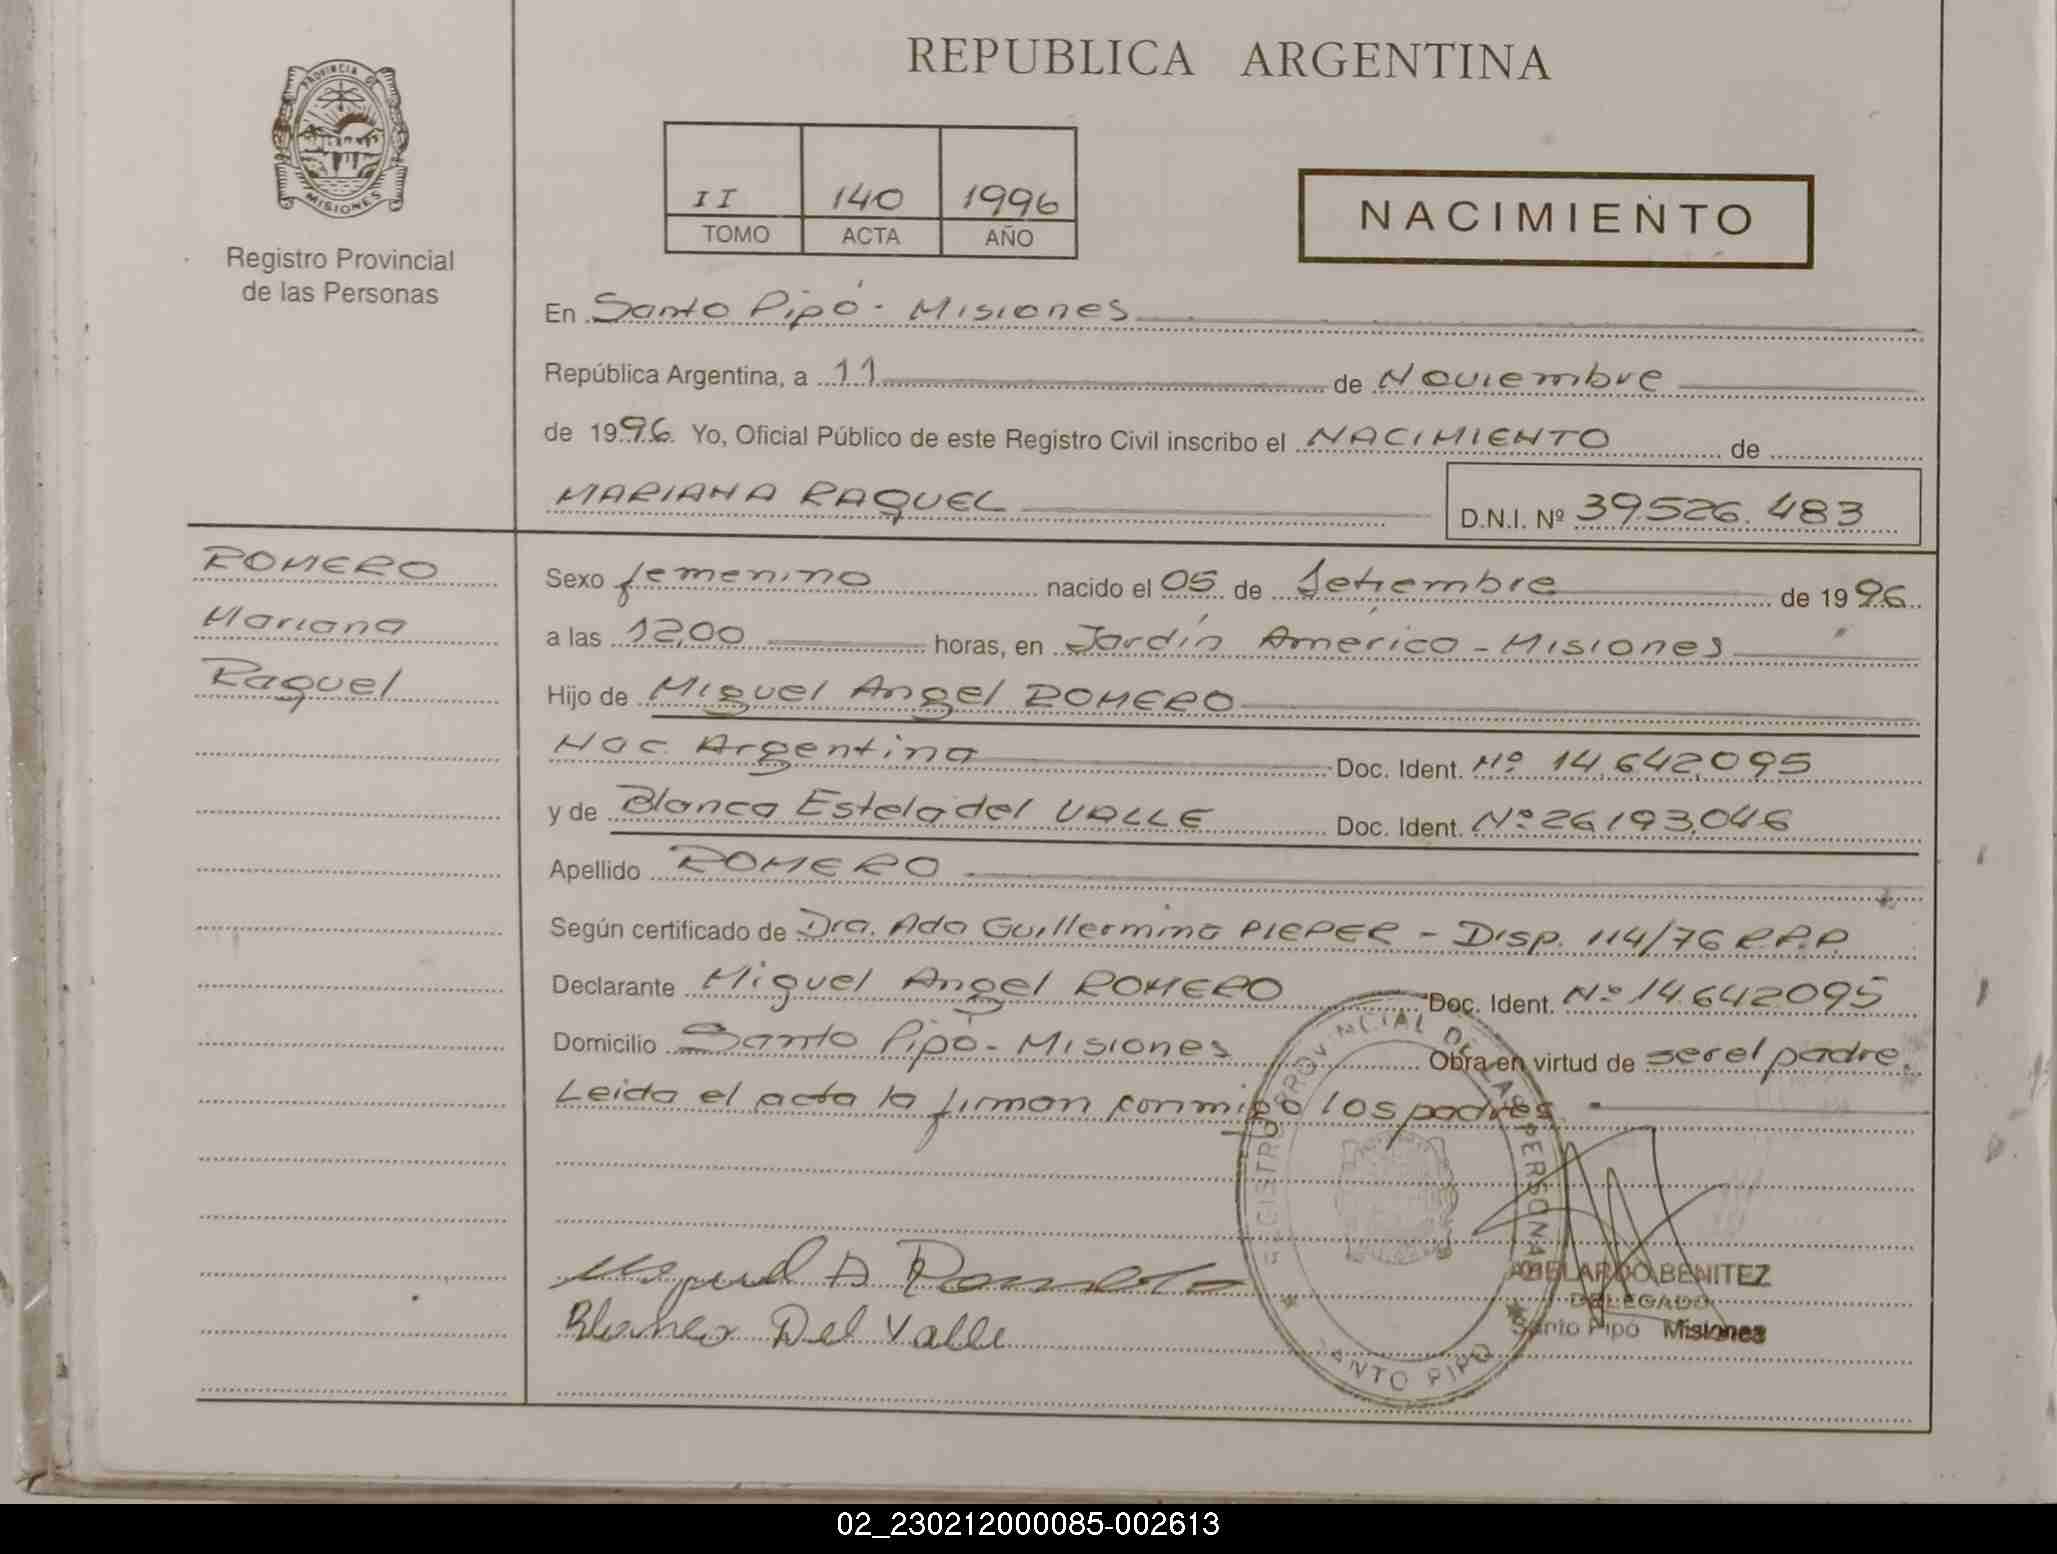 REPUBLICA ARGENTINA
PROVINCIA DE
MISIONES
Registro Provincial
de las Personas
II 140 1996
TOMO ACTA AÑO
NACIMIENTO
En Santo Pipó - Misiones
República Argentina, a 11 de Noviembre
de 1996 Yo, Oficial Público de este Registro Civil inscribo el NACIMIENTO de
MARIANA RAQUEL
D.N.I. Nº 39526.483
ROMERO
Mariana
Raquel
Sexo femenino nacido el 05 de Setiembre de 1996
a las 12,00 horas, en Jardín América - Misiones
Hijo de Miguel Angel ROMERO
Nac. Argentina Doc. Ident. Nº 14.642.095
y de Blanca Estela del VALLE Doc. Ident. Nº 26.193.046
Apellido ROMERO
Según certificado de Dra. Ada Guillermina PIEPER - Disp. 114/76 R.P.P.
Declarante Miguel Angel ROMERO Doc. Ident. Nº 14.642.095
Domicilio Santo Pipó - Misiones Obra en virtud de ser el padre.
Leida el acta la firman conmigo los padres
REGISTRO PROVINCIAL DE LAS PERSONAS
SANTO PIPO
Miguel A Romero
Blanca Del Valle
ABELARDO BENITEZ
DELEGADO
Santo Pipó Misiones
02_230212000085-002613